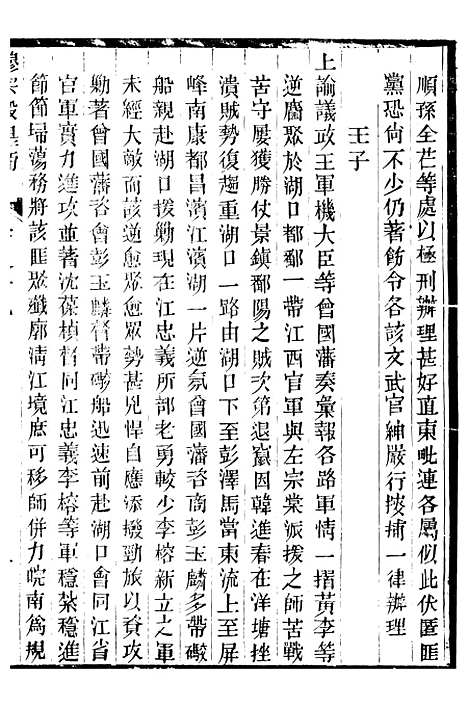 順孫全芒等處以極刑辦理甚好直東毗連各屬似此伏匿匪
黨恐尙不少仍著飭令各該文武官紳嚴行搜捕一律辦理
壬子
上諭議政王軍機大臣等曾國藩奏彙報各路軍情一摺黃李等
逆麕聚於湖口都鄱一帶江西官軍與左宗棠派撥之師苦戰
苦守屢獲勝仗景鎭鄱陽之賊次第退竄因韓進春在洋塘挫
潰賊勢復趨重湖口一路由湖口下至彭澤馬當東流上至屏
峰南康都昌濱江濱湖一片逆氛曾國藩咨商彭玉麟多帶礮
船親赴湖口援勦現在江忠義所部老勇較少李榕新立之軍
未經大敵而該逆愈聚愈眾勢甚兇悍自應添撥勁旅以資攻
勦著曾國藩咨會彭玉麟督帶礮船迅速前赴湖口會同江省
官軍實力進攻並著沈葆楨督同江忠義李榕等軍穩紮穩進
節節掃蕩務將該匪聚殲廓淸江境庶可移師併力皖南爲規